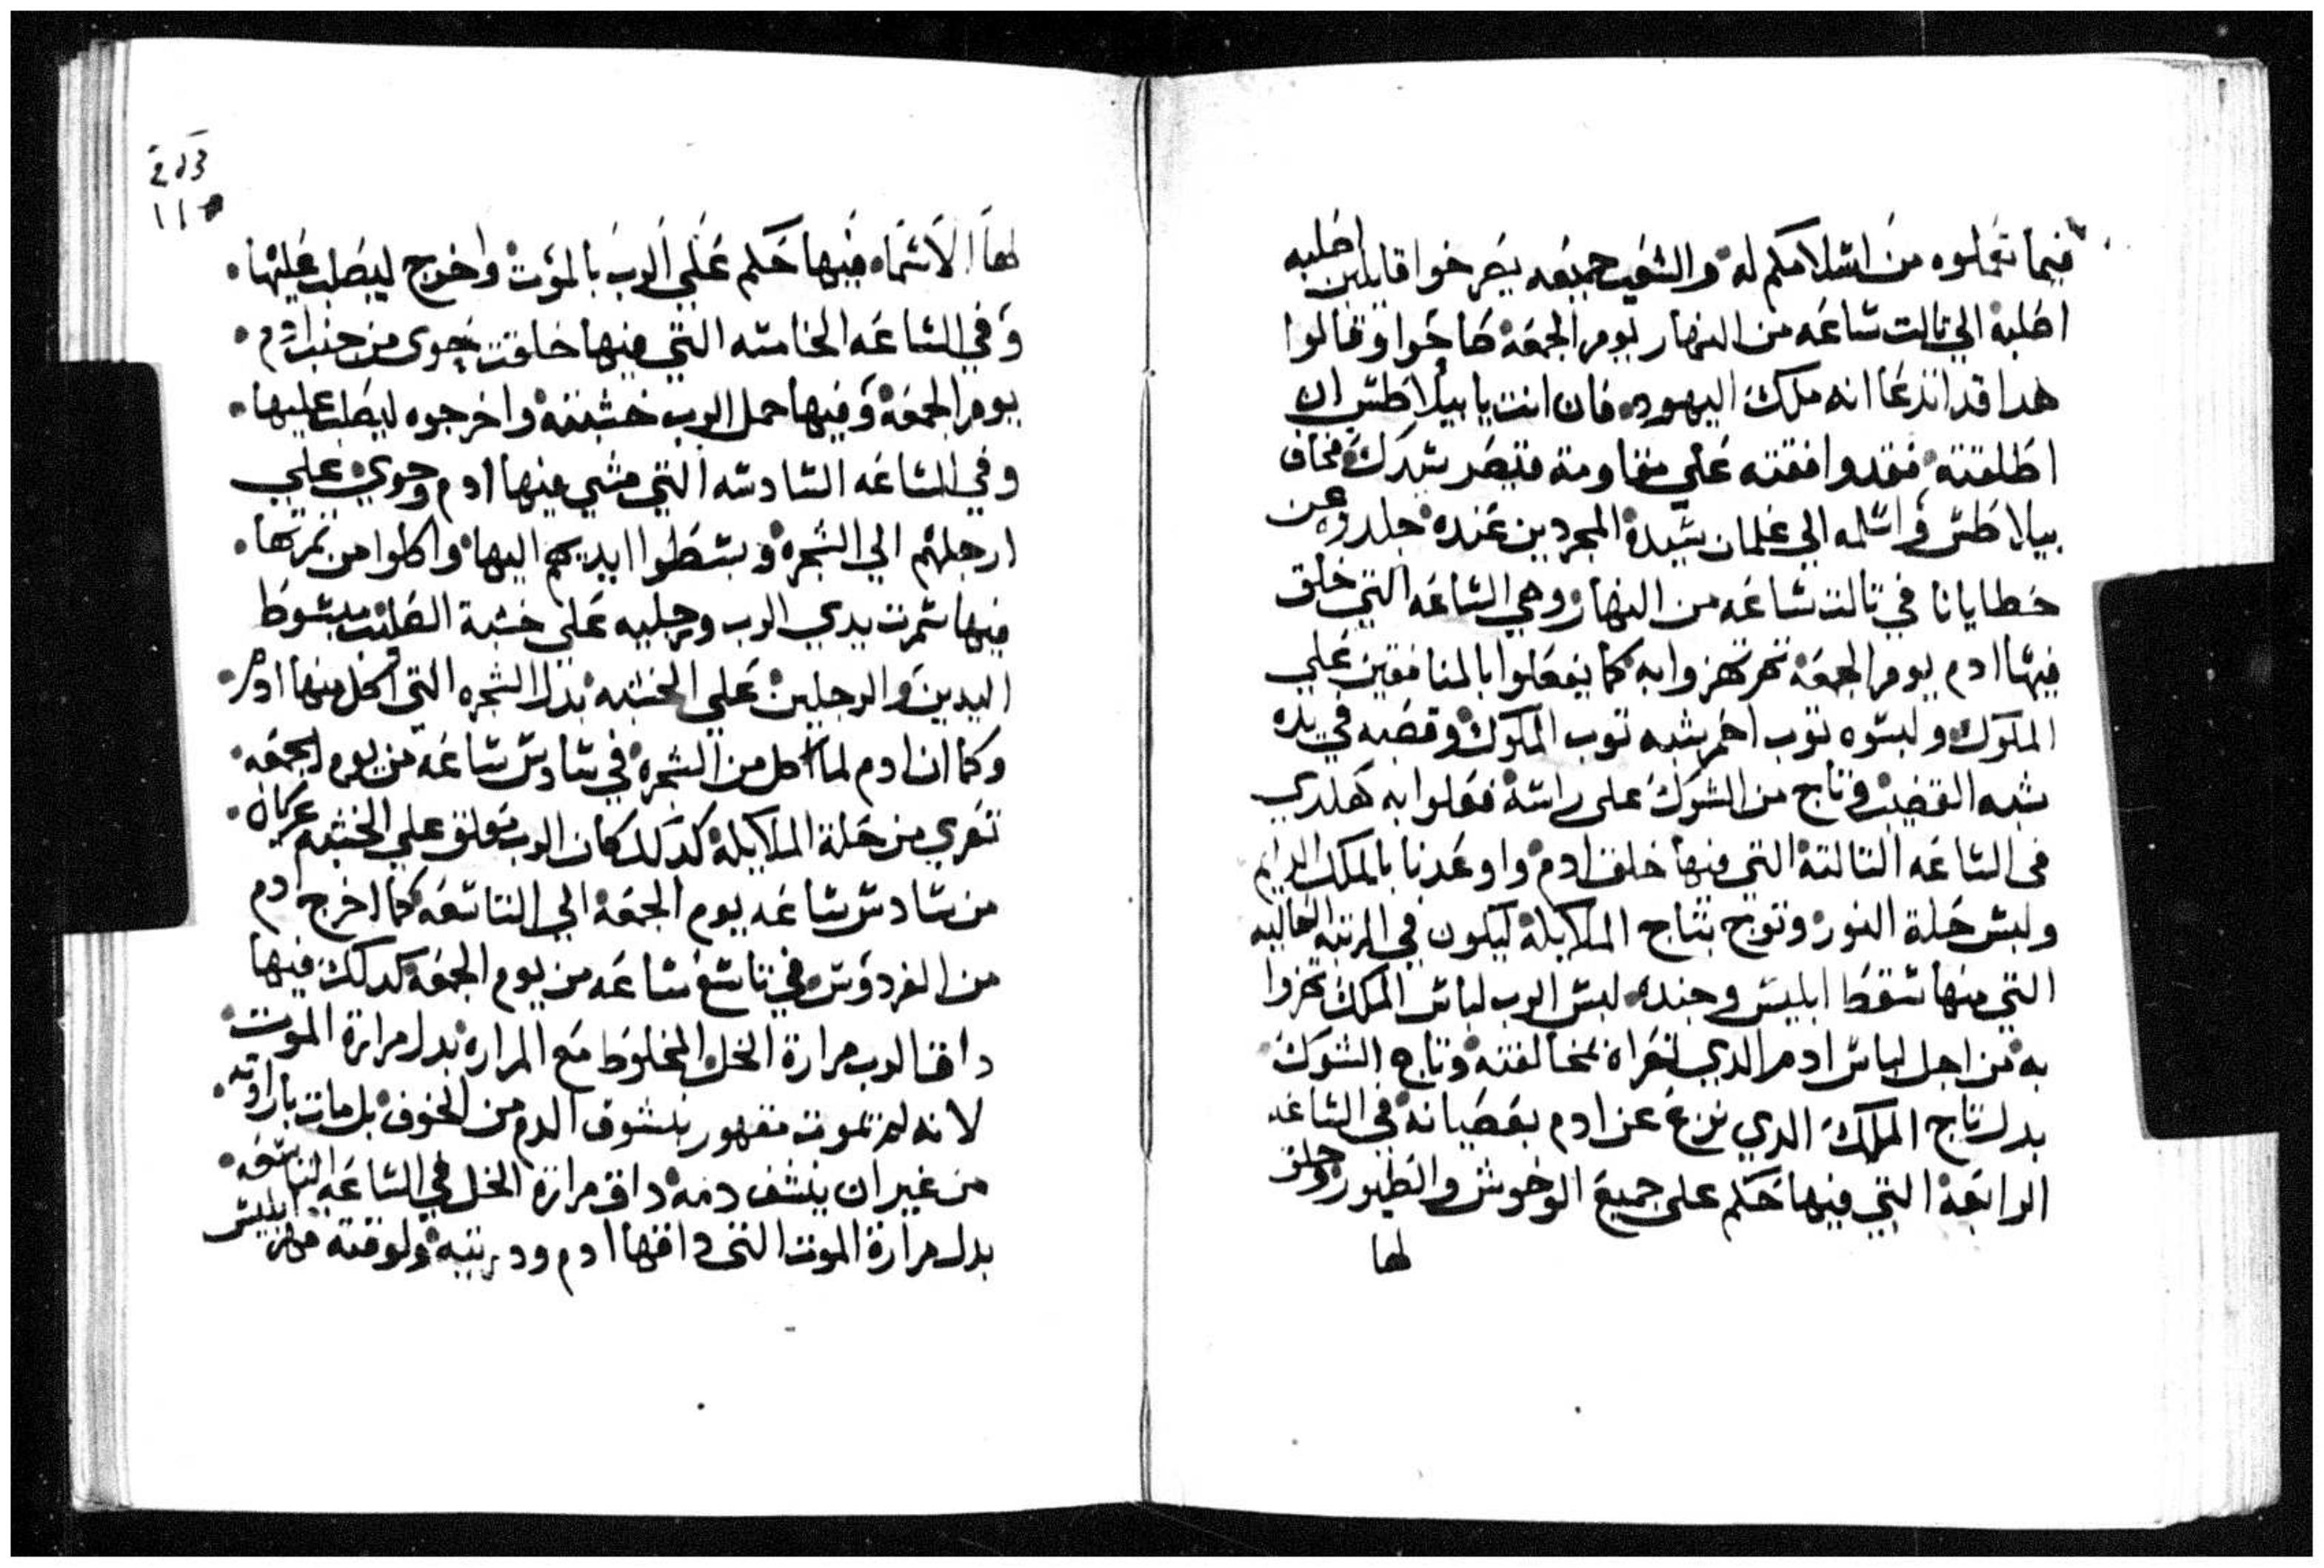 فيما تعملوه من اسلامكم له والشعب جميعه يصرخوا قايلين اصلبه
اصلبه الي تالت ساعه من النهار يوم الجمعه صاحوا وقالوا
هدا قد اندعا انه ملك اليهود فان انت يا بيلاطس ان
اطلقته فقد وافقته علي مقاومة قيصر سيدك فخاف
بيلاطس واسلمه الي غلمان سيده المجردين عنده جلدوه عن
خطايانا في تالت ساعه من النهار وهي الساعه التي خلق
فيها ادم يوم الجمعه تم تهزوا به كما يفعلوا بالمنافقين علي
الملوك ولبسوه توب احمر شبه توب الملوك وقصبه في يده
شبه القضيب وتاج من الشوك على راسه فعلوا به هلدي
في الساعه التالته التي فيها خلق ادم واوعدنا بالملك الدايم
ولبس حلة النور وتوج بتاج الملايكه ليكون في المرتبه العاليه
التي منها سقط ابليس وجنده لبس الرب لباس الملك تهزوا
به من اجل لباس ادم الدي تعراه بمخالفته وتاج الشوك
بدل تاج الملك الدي نزع عن ادم بعصيانه في الساعه
الرابعه التي فيها حكم على جميع الوحوش والطيور وخلق
لها
لها الاسما فيها حكم علي الرب بالموت واخرج ليصلب عليها
وفي الساعه الخامسه التي فيها خلقت حوي من جنب ادم
يوم الجمعه وفيها حمل الرب خشبته واخرجوه ليصلب عليها
وفي الساعه السادسه التي مشي فيها ادم وحوي علي
ارجلهم الي الشجره وبسطوا ايديهم اليها واكلوا من تمرتها
فيها سمرت يدي الرب ورجليه على خشبة الصليب مبسوط
اليدين والرجلين علي الخشبه بدل الشجره التي اكل منها ادم
وكما ان ادم لما اكل من الشجره في سادس ساعه من يوم الجمعه
تعري من حلة الملايكه كدلك كان الرب معلق علي الخشبه عريان
من سادس ساعه يوم الجمعه الي التاسعه كما اخرج ادم
من الفردوس في تاسع ساعه من يوم الجمعه كدلك فيها
داق الرب مرارة الخل المخلوط مع المراره بدل مرارة الموت
لانه لم يموت مقهور بنشوف الدم من الخوف بل مات بارادته
من غير ان ينشف دمه داق مرارة الخل في الساعه التاسعه
بدل مرارة الموت التي داقها ادم ودريته ولوقته قهر ابليس